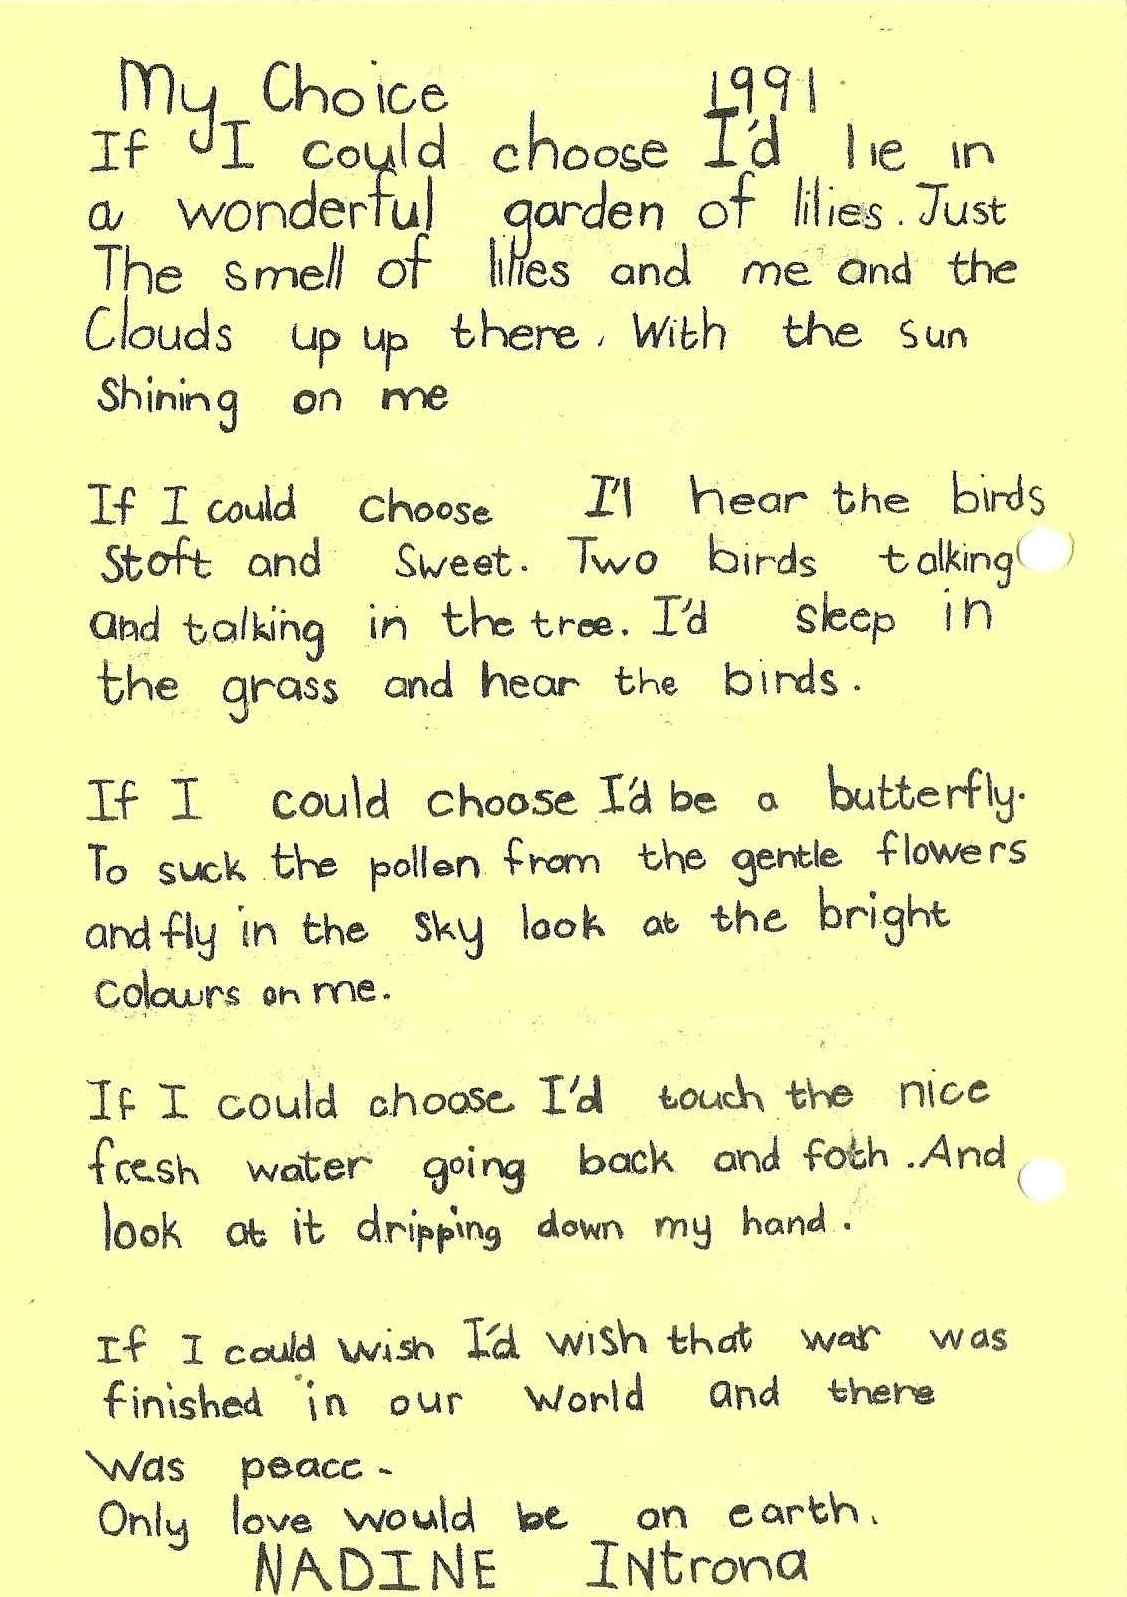 My Choice 1991
If I could choose I'd lie in
a wonderful garden of lilies. Just
The smell of lilies and me and the
Clouds up up there. With the sun
Shining on me
If I could choose I'l hear the birds
Stoft and Sweet. Two birds talking
and talking in the tree. I'd sleep in
the grass and hear the birds.
If I could choose I'd be a butterfly.
To suck the pollen from the gentle flowers
and fly in the sky look at the bright
colours on me.
If I could choose I'd touch the nice
fresh water going back and foth. And
look at it dripping down my hand.
If I could wish I'd wish that war was
finished in our world and there
was peace-
Only love would be on earth.
NADINE INtrona